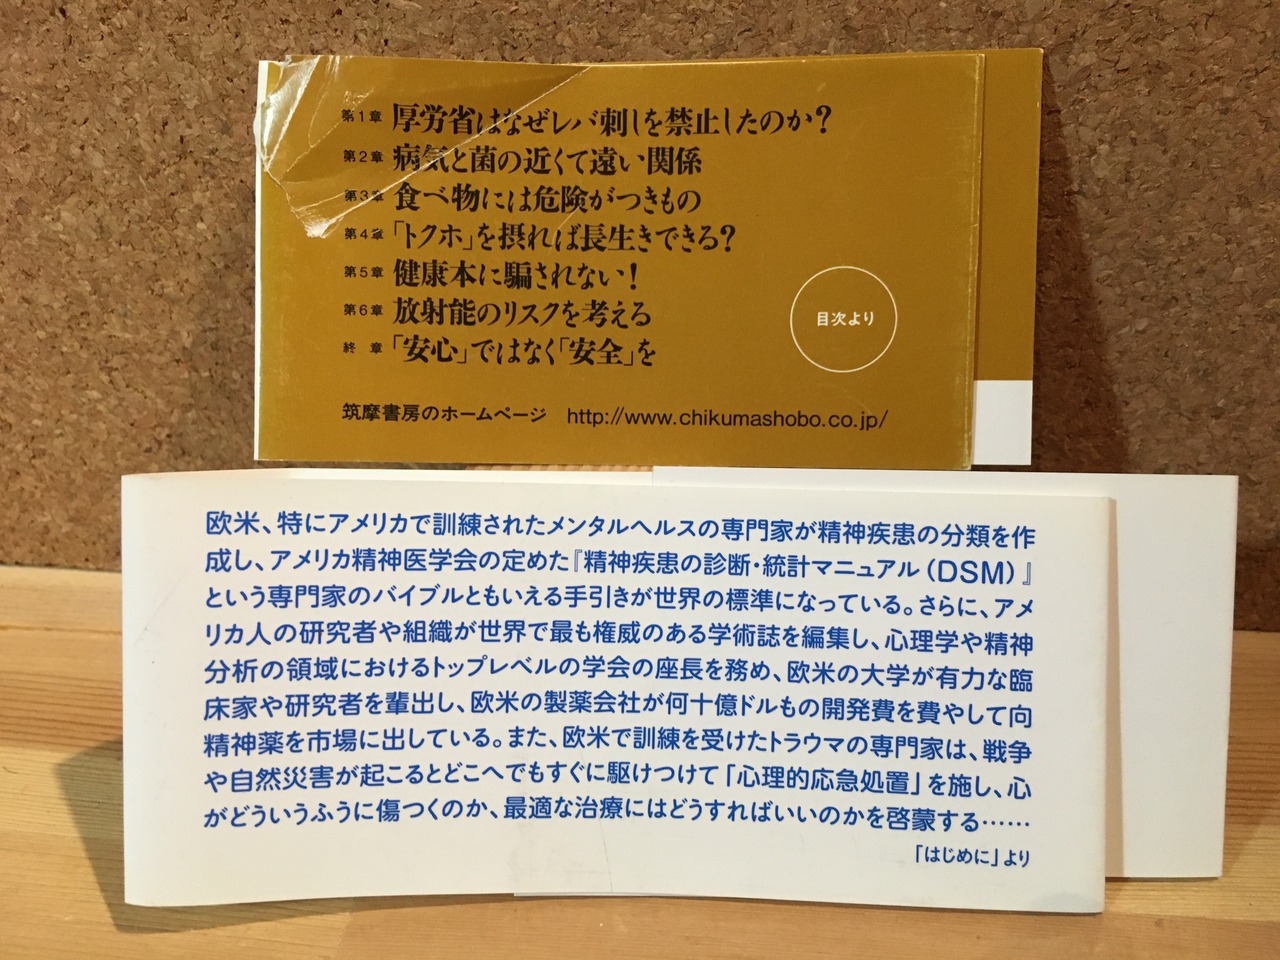 第1章 厚労省はなぜレバ刺しを禁止したのか?
第2章 病気と菌の近くて遠い関係
第3章 食べ物には危険がつきもの
第4章 「トクホ」を摂れば長生きできる?
第5章 健康本に騙されない!
第6章 放射能のリスクを考える
終 章 「安心」ではなく「安全」を
目次より
筑摩書房のホームページ http://www.chikumashobo.co.jp/
欧米、特にアメリカで訓練されたメンタルヘルスの専門家が精神疾患の分類を作
成し、アメリカ精神医学会の定めた『精神疾患の診断・統計マニュアル(DSM)』
という専門家のバイブルともいえる手引きが世界の標準になっている。さらに、アメ
リカ人の研究者や組織が世界で最も権威のある学術誌を編集し、心理学や精神
分析の領域におけるトップレベルの学会の座長を務め、欧米の大学が有力な臨
床家や研究者を輩出し、欧米の製薬会社が何十億ドルもの開発費を費やして向
精神薬を市場に出している。また、欧米で訓練を受けたトラウマの専門家は、戦争
や自然災害が起こるとどこへでもすぐに駆けつけて「心理的応急処置」を施し、心
がどういうふうに傷つくのか、最適な治療にはどうすればいいのかを啓蒙する……
「はじめに」より